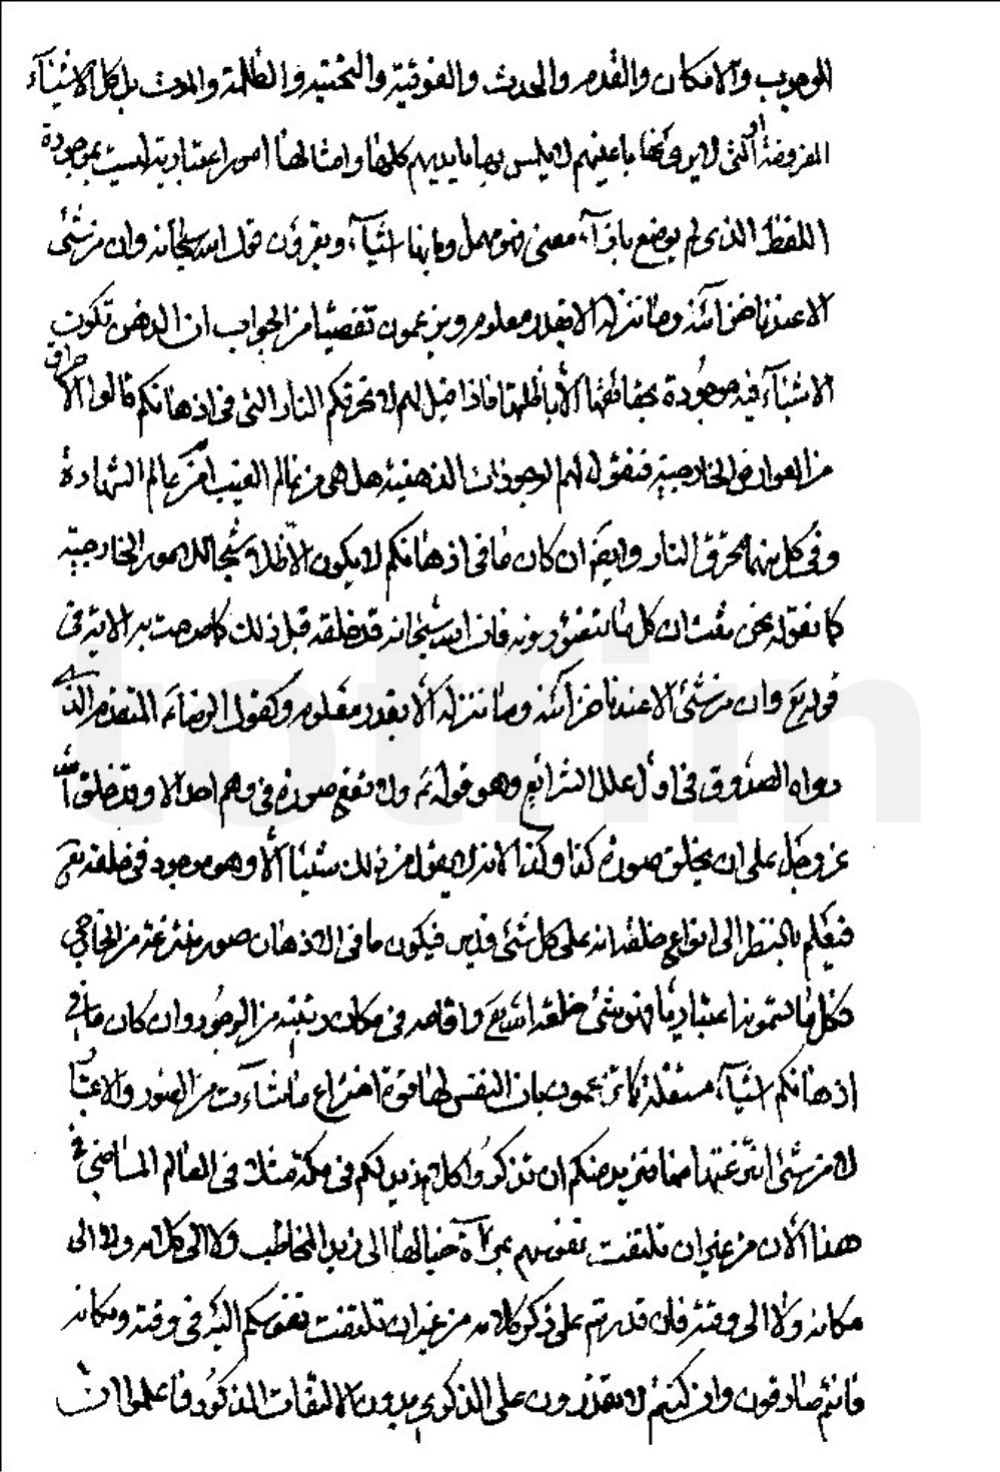 الوجوب والامكان والقدم والحدث والفوقية والتحتية والظلمة والموت بل كل الاشيآء
المفروضة او التى لا يرونها باعينهم او يلمس بها بايديهم كلها وامثالها امور اعتبارية ليست بموجودة
اللفظ الذى لم يوضع بازآء معنى فهو مهمل وما بها اشيآء ويقرؤن قول الله سبحانه وان من شئ
الا عندنا خزآئنه وما ننزله الا بقدر معلوم ويزعمون تفصيا من الجواب ان الذهن تكون
الاشيآء فيه موجودة بحقائقها لا باظلتها فاذا قيل لهم لم لا تحرقكم النار التى فى اذهانكم قالوا الاحراق
من العوارض الخارجية فنقول لهم الموجودات الذهنية هل هى من عالم الغيب ام من عالم الشهادة
وفى كل منهما تحرق النار وايضا ان كان ما فى اذهانكم لا يكون الا ظلا وشبحا للامور الخارجية
كما نقوله نحن نثبت ان كل ما تتصورونه فان الله سبحانه قد خلقه قبل ذلك كما صرحت به الاية فى
قوله تع وان من شئ الا عندنا خزآئنه وما ننزله الا بقدر معلوم وكقول الرضا ع المتقدم الذى
رواه الصدوق فى اول علل الشرائع وهو قوله ع ولا تقع صورة فى وهم احد الا وقد خلق الله
عز وجل على ان يخلق صورة كذا وكذا لانه لا يقول من ذلك شيئا الا وهو موجود فى خلقه تع
فيعلم بالنظر الى انواع خلقه انه على كل شئ قدير فيكون ما فى الاذهان صور منتزعة من الخارجى
فكل ما تسمونه اعتباريا فهو شئ خلقه الله تع واقامه فى مكان رتبته من الوجود وان كان ما فى
اذهانكم اشيآء مستقلة كما تزعمون بان النفس لها قوة اختراع ما شآءت من الصور والاعتبا
لا من شئ انتزعتها منه فنريد منكم ان تذكروا كلام زيد لكم فى مكة مثلا فى العام الماضى فى
هذا الان من غير ان تلتفت نفوسكم بمرآة خيالها الى زيد المخاطب ولا الى كلامه ولا الى
مكانه ولا الى وقته فان قدرتم على ذكر كلامه من غير ان تلتفت نفوسكم اليه فى وقته ومكانه
فانتم صادقون وان كنتم لا تقدرون على الذكرى بدون الالتفات المذكور فاعلموا ان